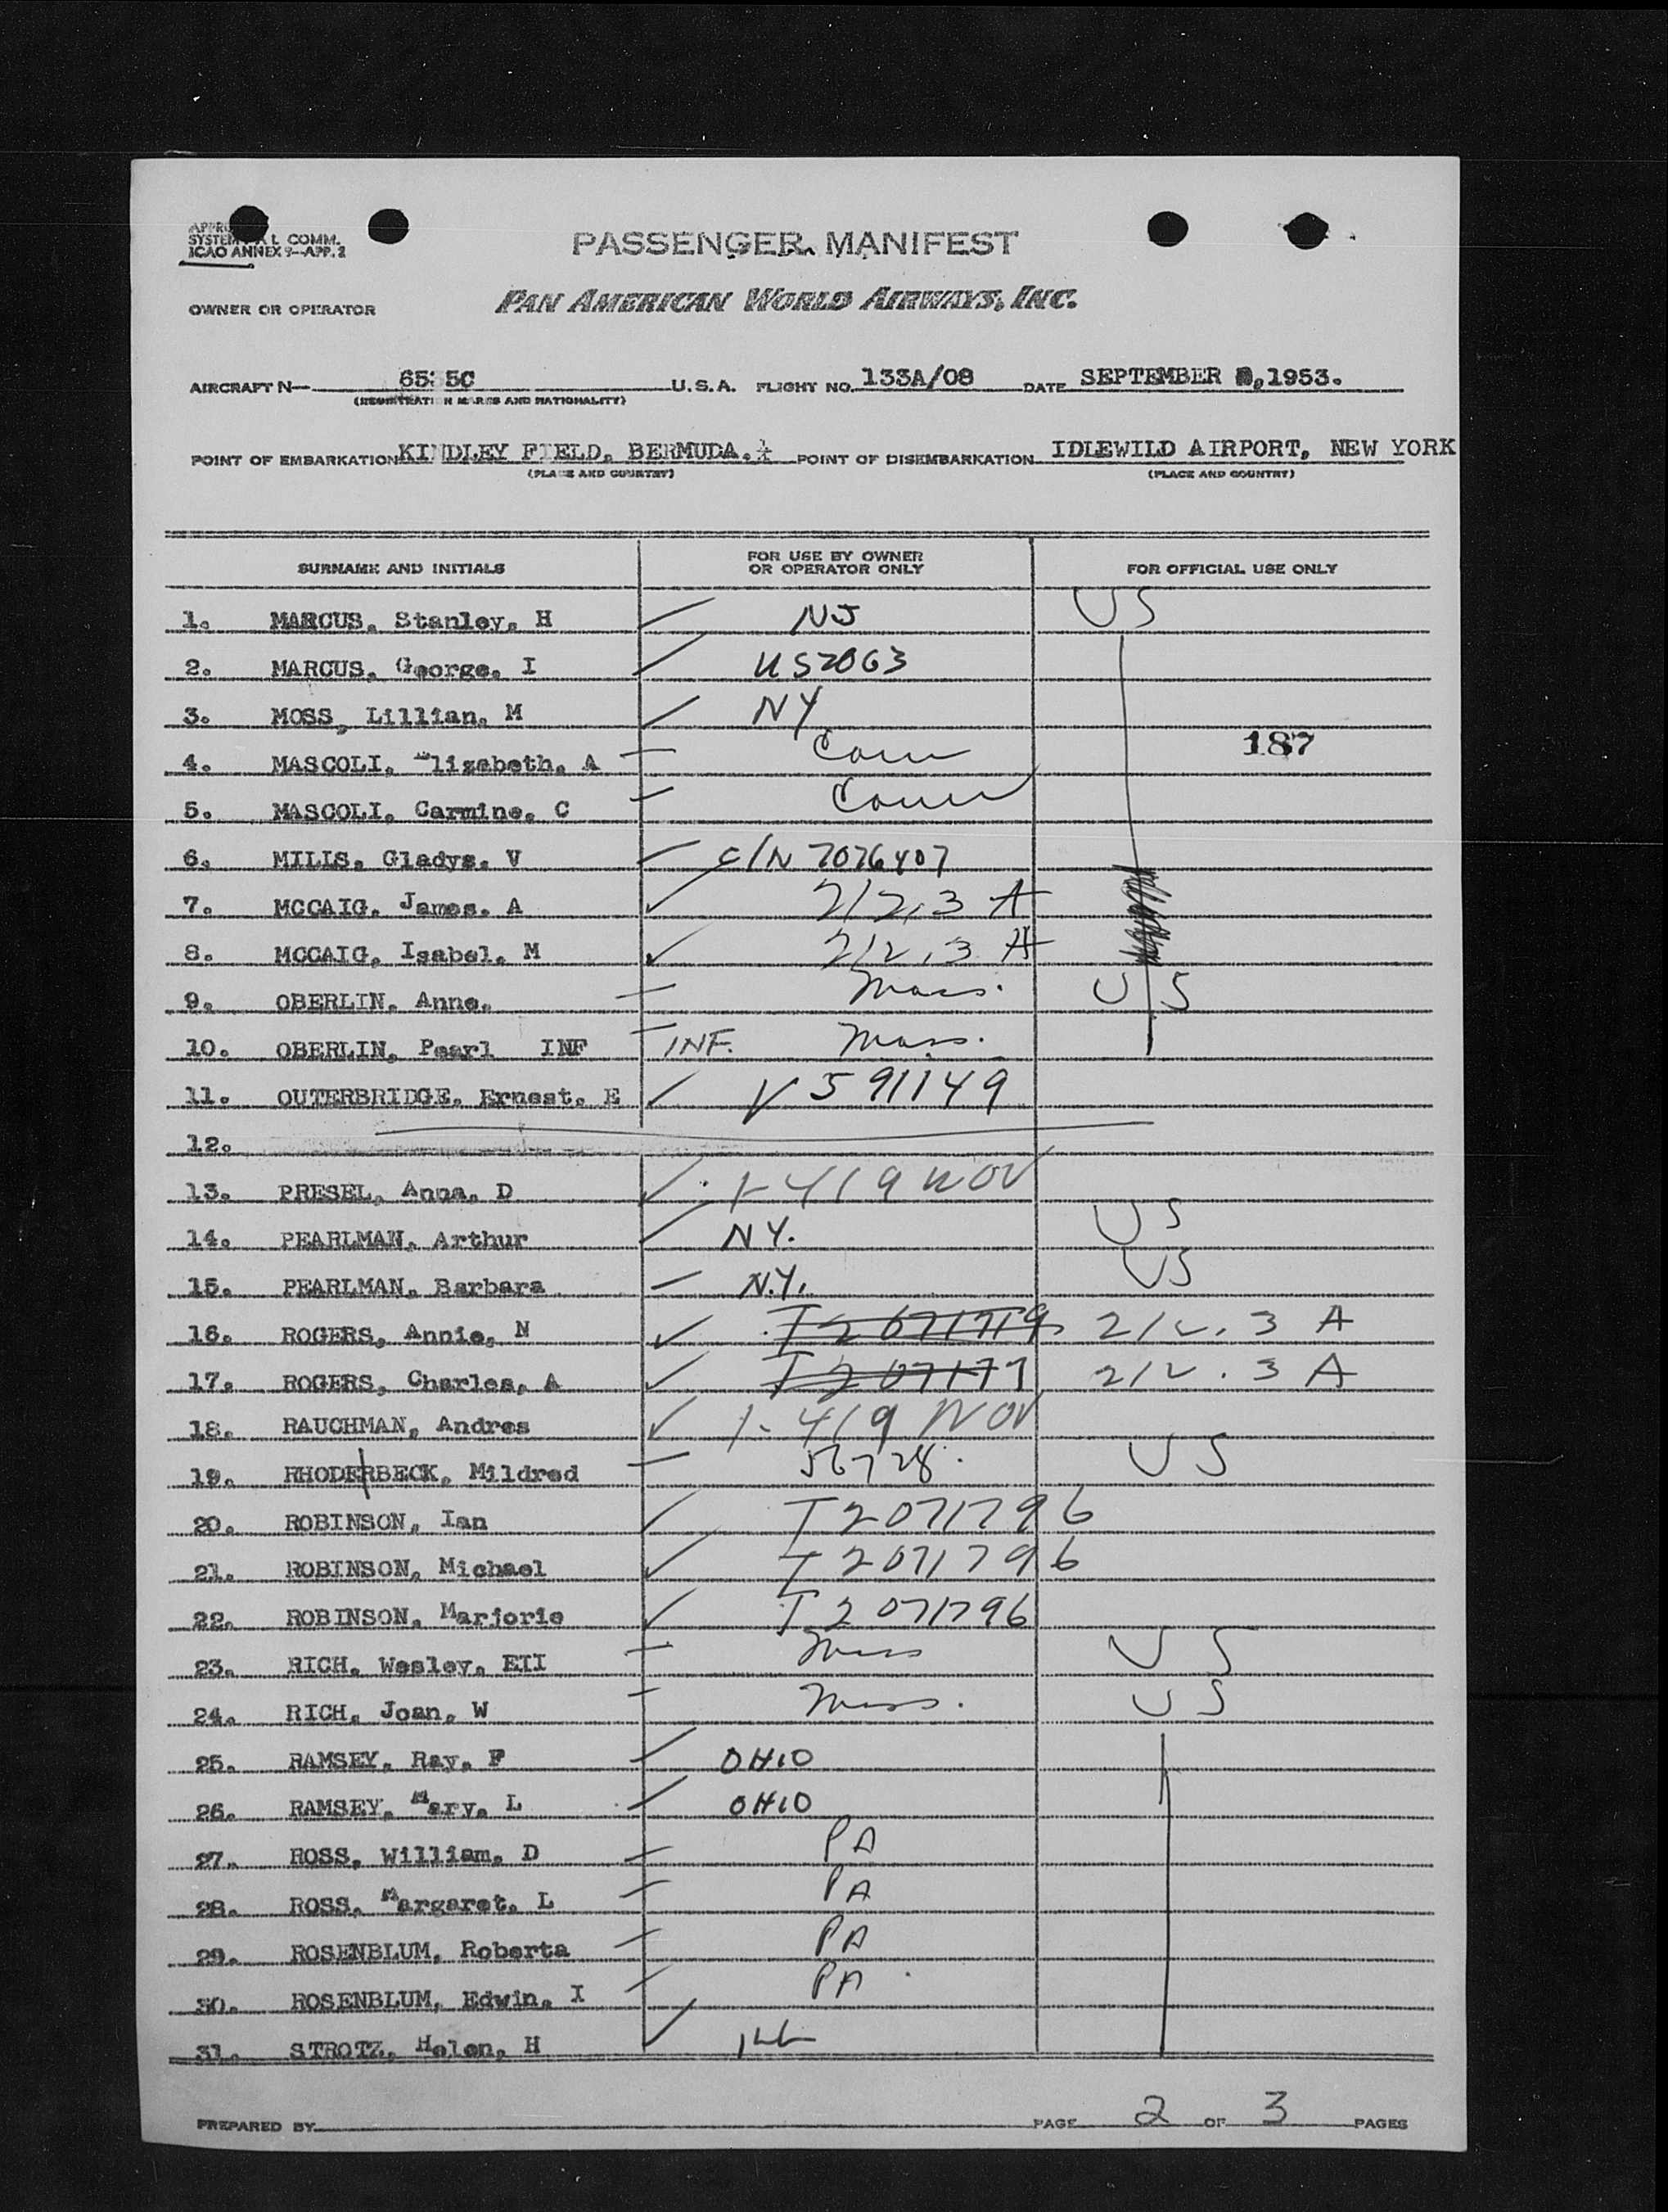 SYSTEM AL COMM.
ICAO ANNEX 9—APP. 2
PASSENGER MANIFEST
OWNER OR OPERATOR PAN AMERICAN WORLD AIRWAYS, INC.
AIRCRAFT N— U.S.A. FLIGHT NO. 133A/08 DATE SEPTEMBER , 1953.
(REGISTRATION MARKS AND NATIONALITY)
POINT OF EMBARKATION KINDLEY FIELD, BERMUDA. POINT OF DISEMBARKATION IDLEWILD AIRPORT, NEW YORK
(PLACE AND COUNTRY) (PLACE AND COUNTRY)
SURNAME AND INITIALS FOR USE BY OWNER OR OPERATOR ONLY FOR OFFICIAL USE ONLY
1. MARCUS, Stanley, H NJ US
2. MARCUS, George, I US2063
3. MOSS, Lillian, M NY
187
4. MASCOLI, Elizabeth, A Conn
5. MASCOLI, Carmine, C Conn
6. MILLS, Gladys, V C/N 7076407
7. MCCAIG, James, A 212.3 A
8. MCCAIG, Isabel, M 212.3 A
9. OBERLIN, Anne. Mass. US
10. OBERLIN, Pearl INF INF. Mass.
11. OUTERBRIDGE, Ernest, E V 591149
12.
13. PRESEL, Anna, D 1-419 NOV
14. PEARLMAN, Arthur NY. US
15. PEARLMAN, Barbara N.Y. US
16. ROGERS, Annie, N 212.3 A
17. ROGERS, Charles, A 212.3 A
18. RAUCHMAN, Andres 1-419 NOV
19. RHODERBECK, Mildred 56728. US
20. ROBINSON, Ian T2071796
21. ROBINSON, Michael T2071796
22. ROBINSON, Marjorie T2071796
23. RICH, Wesley, EII Mass US
24. RICH, Joan, W Mass. US
25. RAMSEY, Ray, F OHIO
26. RAMSEY, Mary, L OHIO
27. ROSS, William, D PA
28. ROSS, Margaret, L PA
29. ROSENBLUM, Roberta PA
30. ROSENBLUM, Edwin, I PA
31. STROTZ, Helen, H ILL
PREPARED BY PAGE 2 OF 3 PAGES